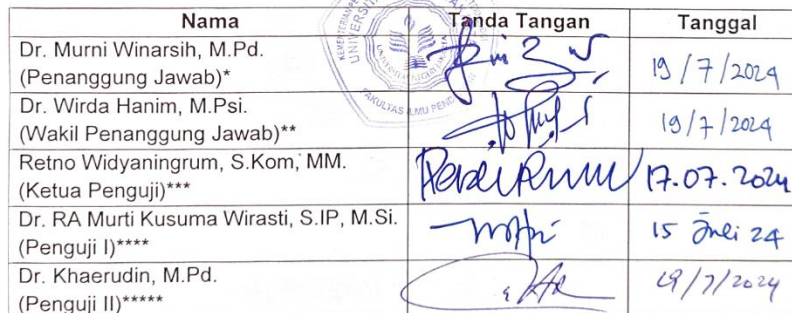 Nama Tanda Tangan Tanggal
Dr. Murni Winarsih, M.Pd.
(Penanggung Jawab)* 19/7/2024
Dr. Wirda Hanim, M.Psi.
(Wakil Penanggung Jawab)** 19/7/2024
Retno Widyaningrum, S.Kom, MM.
(Ketua Penguji)*** 17.07.2024
Dr. RA Murti Kusuma Wirasti, S.IP, M.Si.
(Penguji I)**** 15 Juli 24
Dr. Khaerudin, M.Pd.
(Penguji II)***** 19/7/2024
FAKULTAS ILMU